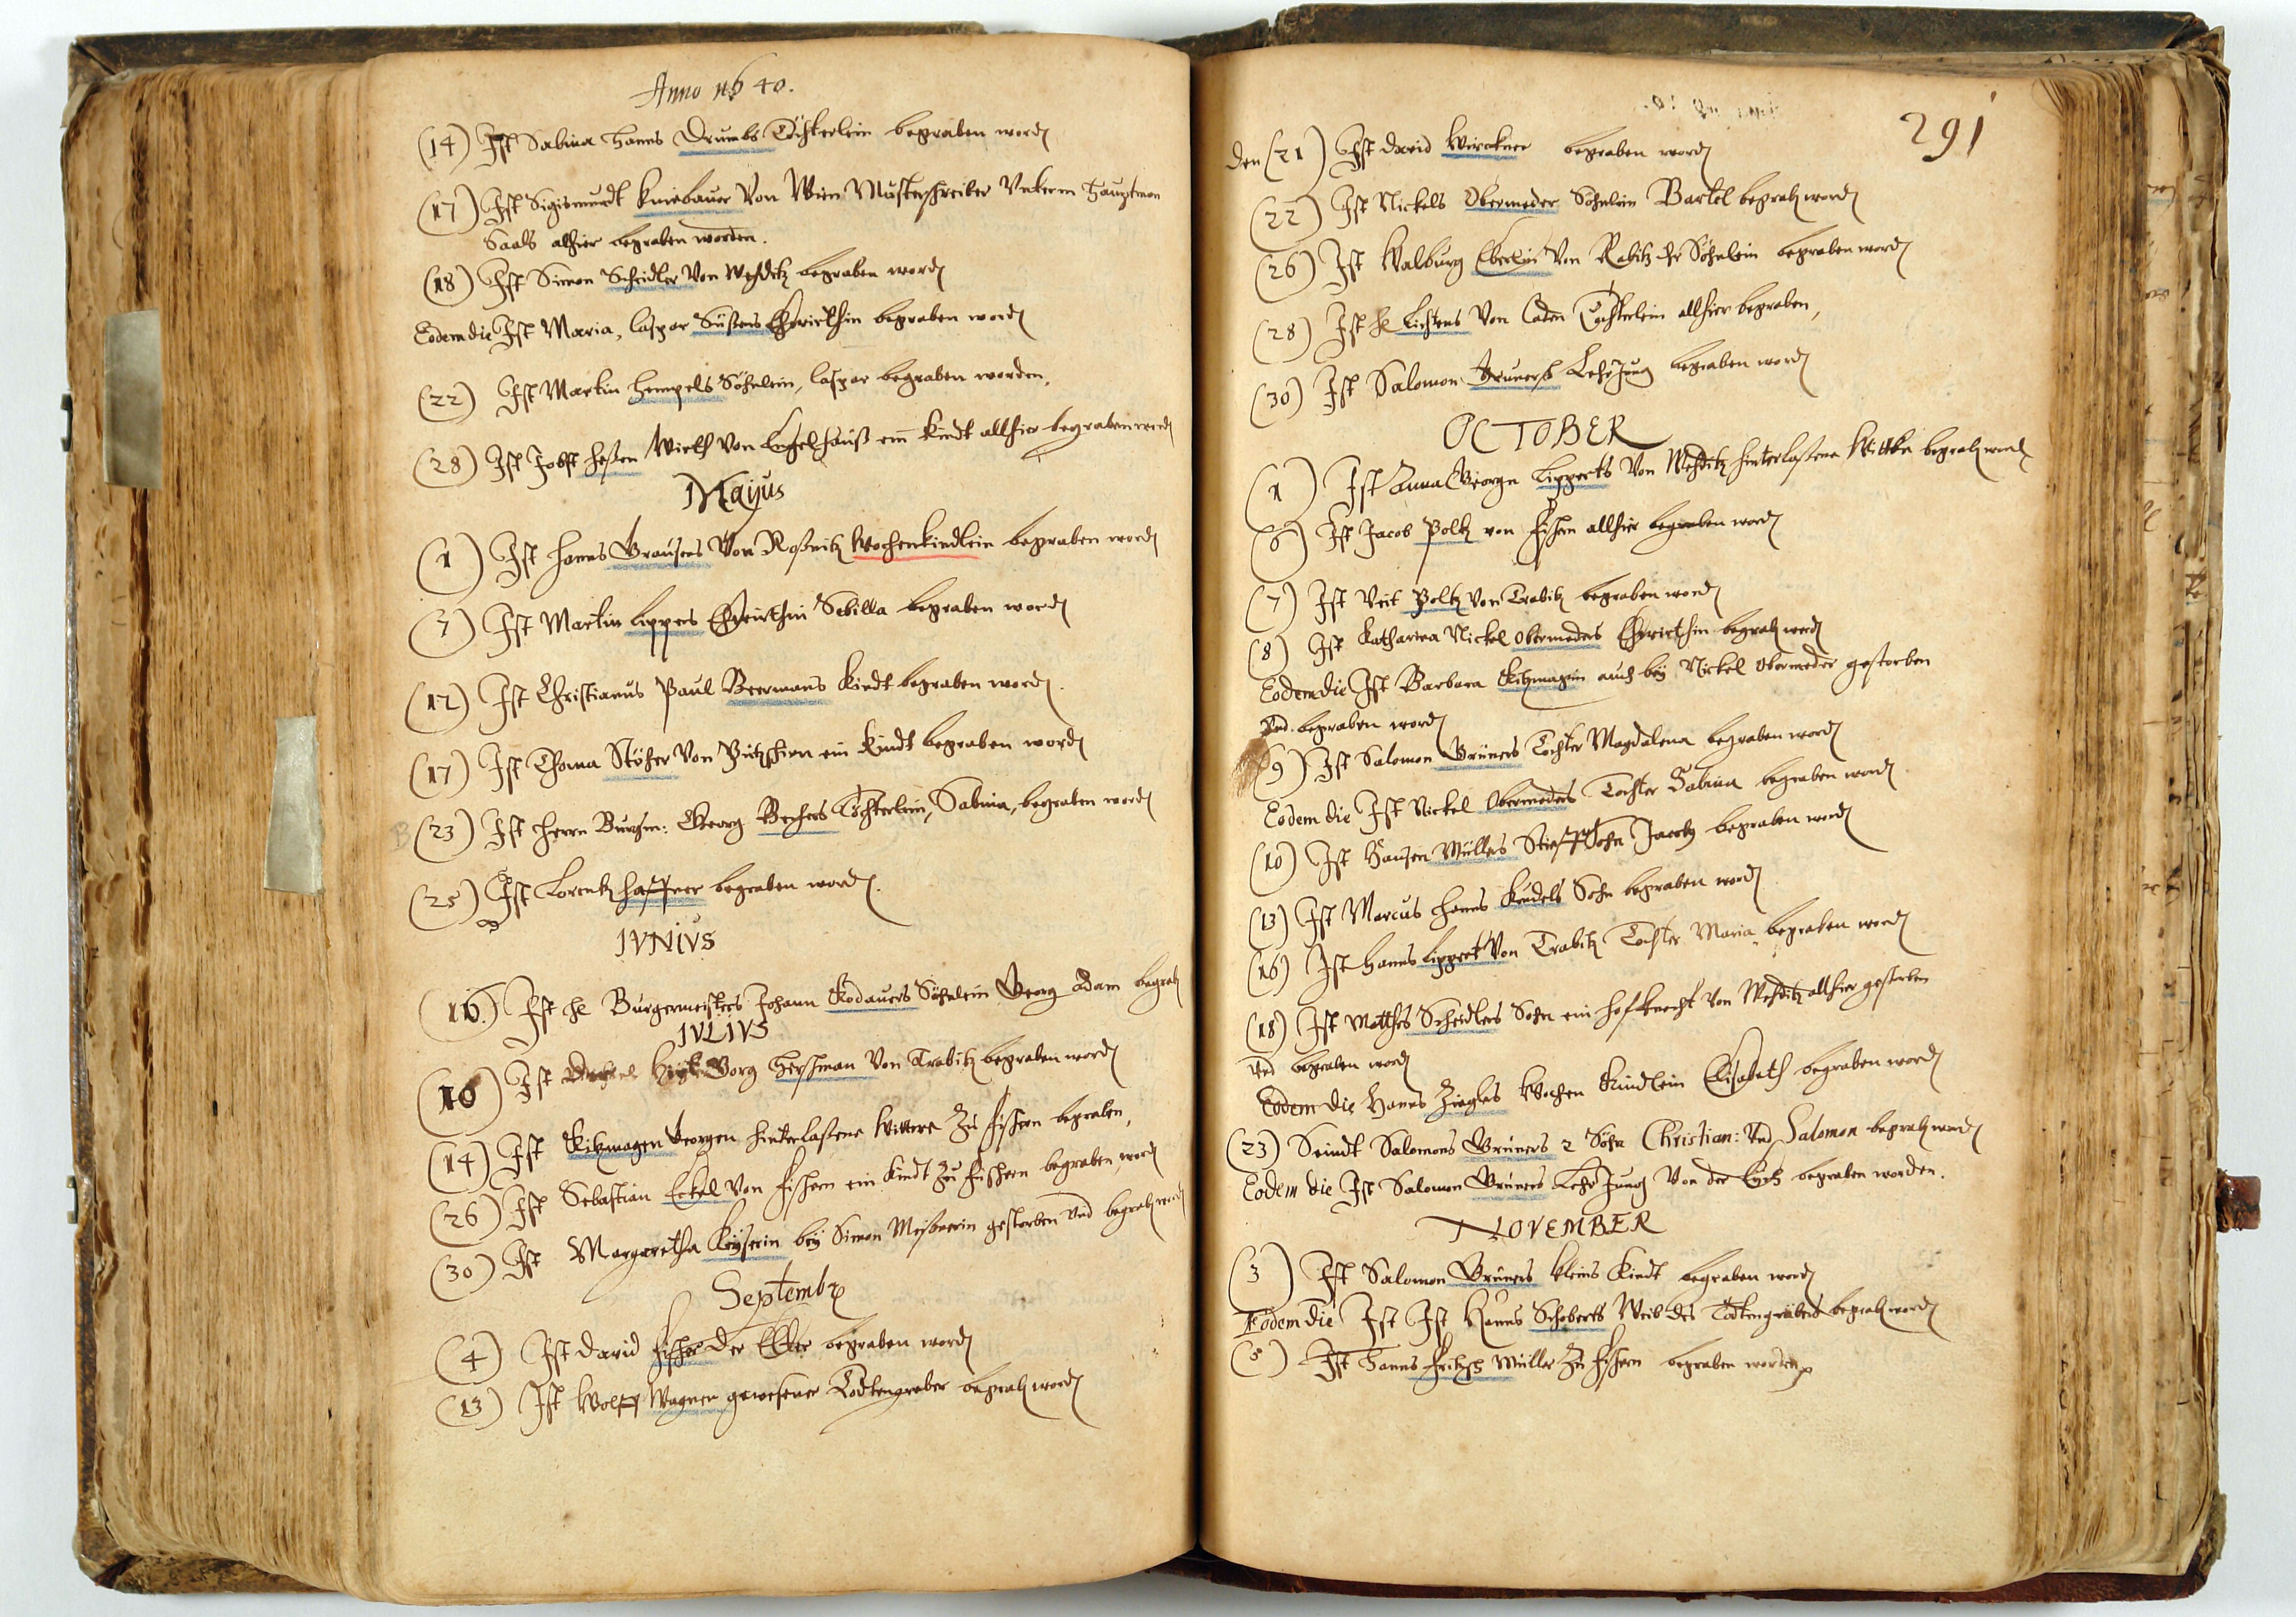 Anno 1640.
(14) Ist Sabina Hanns Drumbs Töchterlein begraben word
(17) Ist Sigismundt Kniebauer Von Wien Musterschreiber Unterm Hauptman
Saals alhier begraben worden.
(18) Ist Simon Scheidler Von begraben word
Eodem die Ist Maria, Caspar Süßens Ehwirthin begraben word
(22) Ist Martin Hempels Söhnlein, Caspar begraben worden,
(28) Ist Jobst Heßen Wirth Von Engelhauß ein Kindt allhier begraben word
Maijus
(1) Ist Hanns Brausers Von Roßnitz Wochenkindlein begraben word
(7) Ist Martin Lippers Ehwirthin Sibilla begraben word
(12) Ist Christianus Paul Beermans Kindt begraben word
(17) Ist Thoma Stöhrer Von ein Kindt begraben word
(23) Ist Herrn Burgm: Georg Bechers Töchterlein, Sabina, begraben word
(25) Ist Lorentz Haffner begraben word
IVNIVS
(16.) Ist H Burgermeisters Johann Kodauers Söhnlein Georg Adam begrab
IVLIVS
(10) Ist Georg Hirschman Von Trabitz begraben word
(14) Ist Kitzmagen Georgen hinterlaßene Wittwe Zu Fischern begraben,
(26) Ist Sebastian Eckel Von Fischern ein Kindt Zu Fischern begraben word
(30) Ist Margaretha Keyserin bey Simon Meißnerin gestorben Und begrab word
Septembr
(4) Ist David Fischer Der Elter begraben word
(13) Ist Wolff Wagner gewesener Todtengräber begrab word
291
Den (21) Ist David Wirckner begraben word
(22) Ist Nickels Obermeder Söhnlein Bartel begrab word
(26) Ist Walburg Eberlin Von Rabitz ihr Söhnlein begraben word
(28) Ist H Lichtens Von Caden Töchterlein allhier begraben,
(30) Ist Salomon Gruners LehrJung begraben word
OCTOBER
(1) Ist Anna Georgn Lipperts Von hinterlaßene Wittbe begrab word
(6) Ist Jacob Poltz von Fischern allhier begraben word
(7) Ist Veit Poltz Von Trabitz begraben word
(8) Ist Katharina Nickel Obermeders Ehwirthin begrab word
Eodem die Ist Barbara Kitzmagin auch bey Nickel Obermeder gestorben
Und begraben word
(9) Ist Salomon Grüners Tochter Magdalena begraben word
Eodem die Ist Nickel Obermeders Tochter Sabina begraben word
(10) Ist Hansen Müllers StieffSohn Jacob begraben word
(13) Ist Marcus Hanns Kendels Sohn begraben word
(16) Ist Hanns Lippert Von Trabitz Tochter Maria begraben word
(18) Ist Matthes Scheidlers Sohn ein Hofknecht Von allhier gestorben
Und begraben word
Eodem die Hanns Zieglers Wochen Kindlein Elisabeth begraben word
(23) Seindt Salomons Grüners 2 Söhn Christian: Und Salomon begrab word
Eodem die Ist Salomon Grüners Lehr Jung Von der begraben worden.
NOVEMBER
(3) Ist Salomon Grüners kleins Kindt begraben word
Eodem die Ist Ist Hanns Schoberts Weib des Todtengräbers begrab word
(5) Ist Hanns Fritzsch Müller Zu Fischern begraben worden